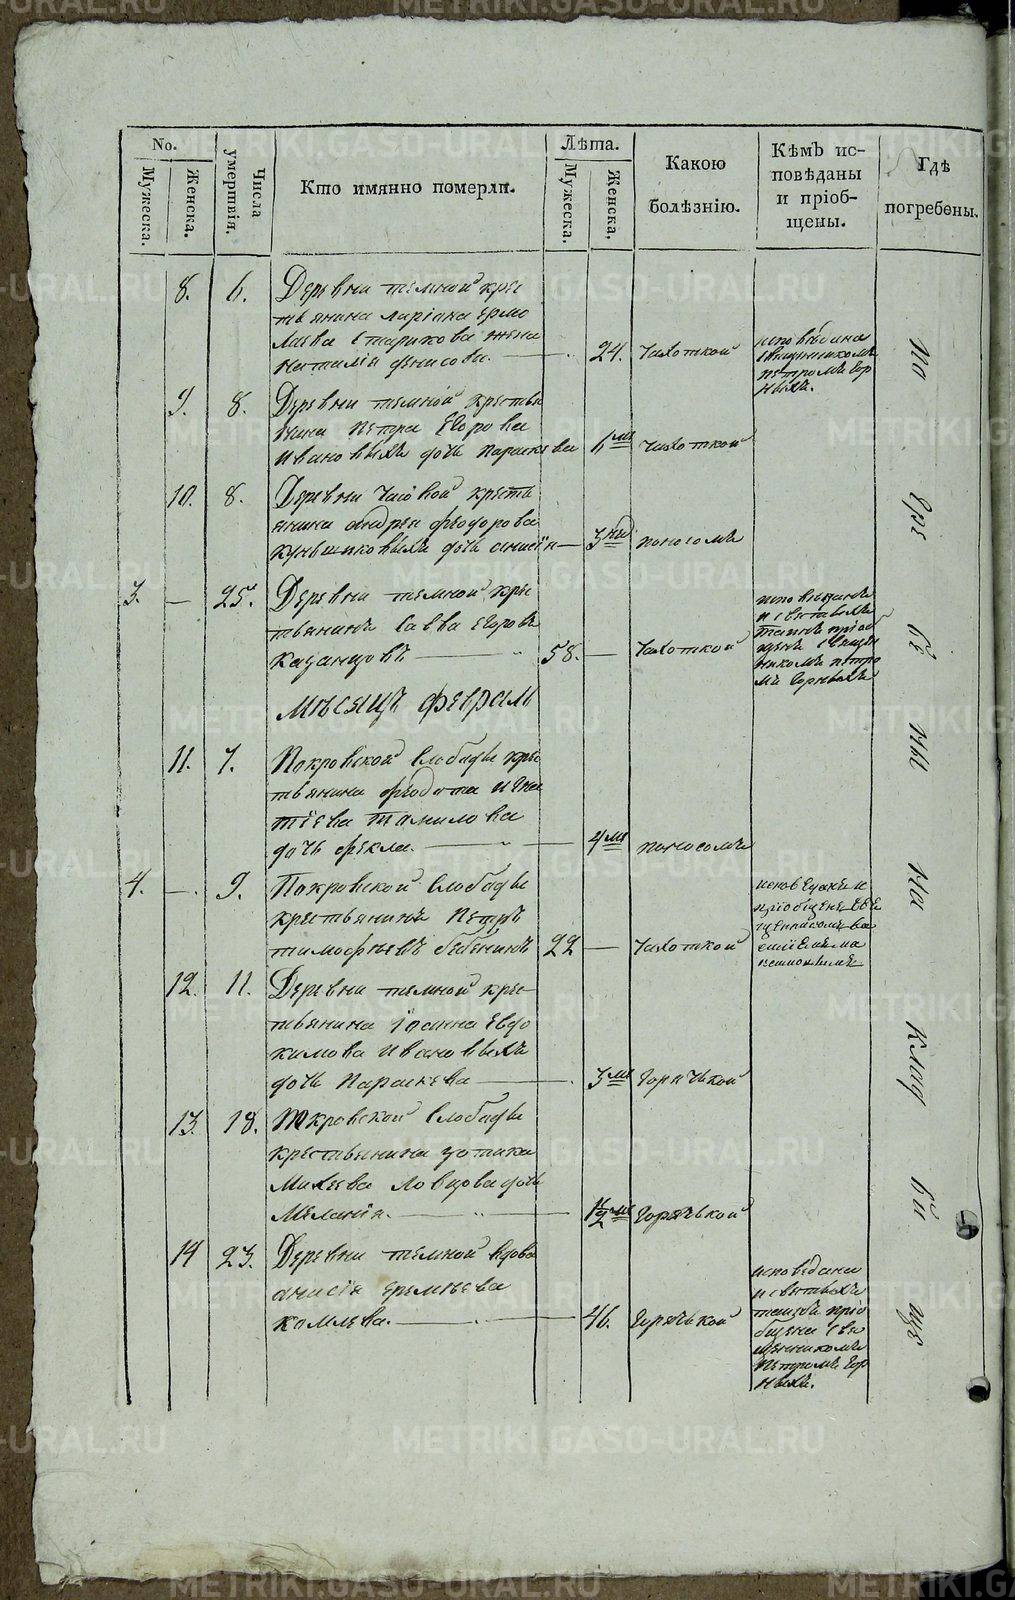 No.
Мужеска.
Женска.
Числа умертвія.
Кто имянно померли.
Лѣта.
Мужеска.
Женска.
Какою болѣзнію.
Кѣмъ исповѣданы и пріобщены.
Гдѣ погребены.
8. 6. Деревни темной крес
тьянина Ларіона Ермо
лаева Старикова жена
Наталія Денисова. 24. Чахоткой
исповѣдана
священникомъ
петромъ Гор
ныхъ.
9. 8. Деревни темной крестья
нина Петра Егорова
Ивановыхъ дочь Параскева 6 ми Чахоткой
10. 8. Деревни Часовой кресть
янина Андрея Феодорова
дочь Анисія 3 поносомъ
3. — 25. Деревни темной крес
тьянинъ Савва Егоровъ
Казанцовъ 58. — Чахоткой
исповѣданъ
и святыхъ
таинъ пріоб
щенъ священ
никомъ петро
мъ Горныхъ
Мѣсяцъ Февраль
11. 7. Покровской Слободы крес
тьянина Федота Игна
тіева Томилова
дочь Фекла. 4 ми поносомъ
4. — 9. Покровской Слободы
крестьянинъ Петръ
Тимофѣевъ Бебенинъ 22 — Чахоткой
исповеданъ и
пріобщенъ све
щенникомъ Ва
силіемъ
12. 11. Деревни темной крес
тьянина Іоанна Евдо
кимова Ивановыхъ
дочь Параскева 3 ми Горячкой
13. 18. Покровской Слободы
крестьянина Зотика
Михеева Ловцова дочь
Меланія. 1 1/2 ми Горячкой
14 23. Деревни темной вдова
Анисія Еремеева
Комлева. 46. Горячкой
исповедана
и святыхъ
таинъ пріо
бщена све
щенникомъ
Петромъ Гор
ныхъ.
На
при
на
клад
би
ще
METRIKI.GASO-URAL.RU